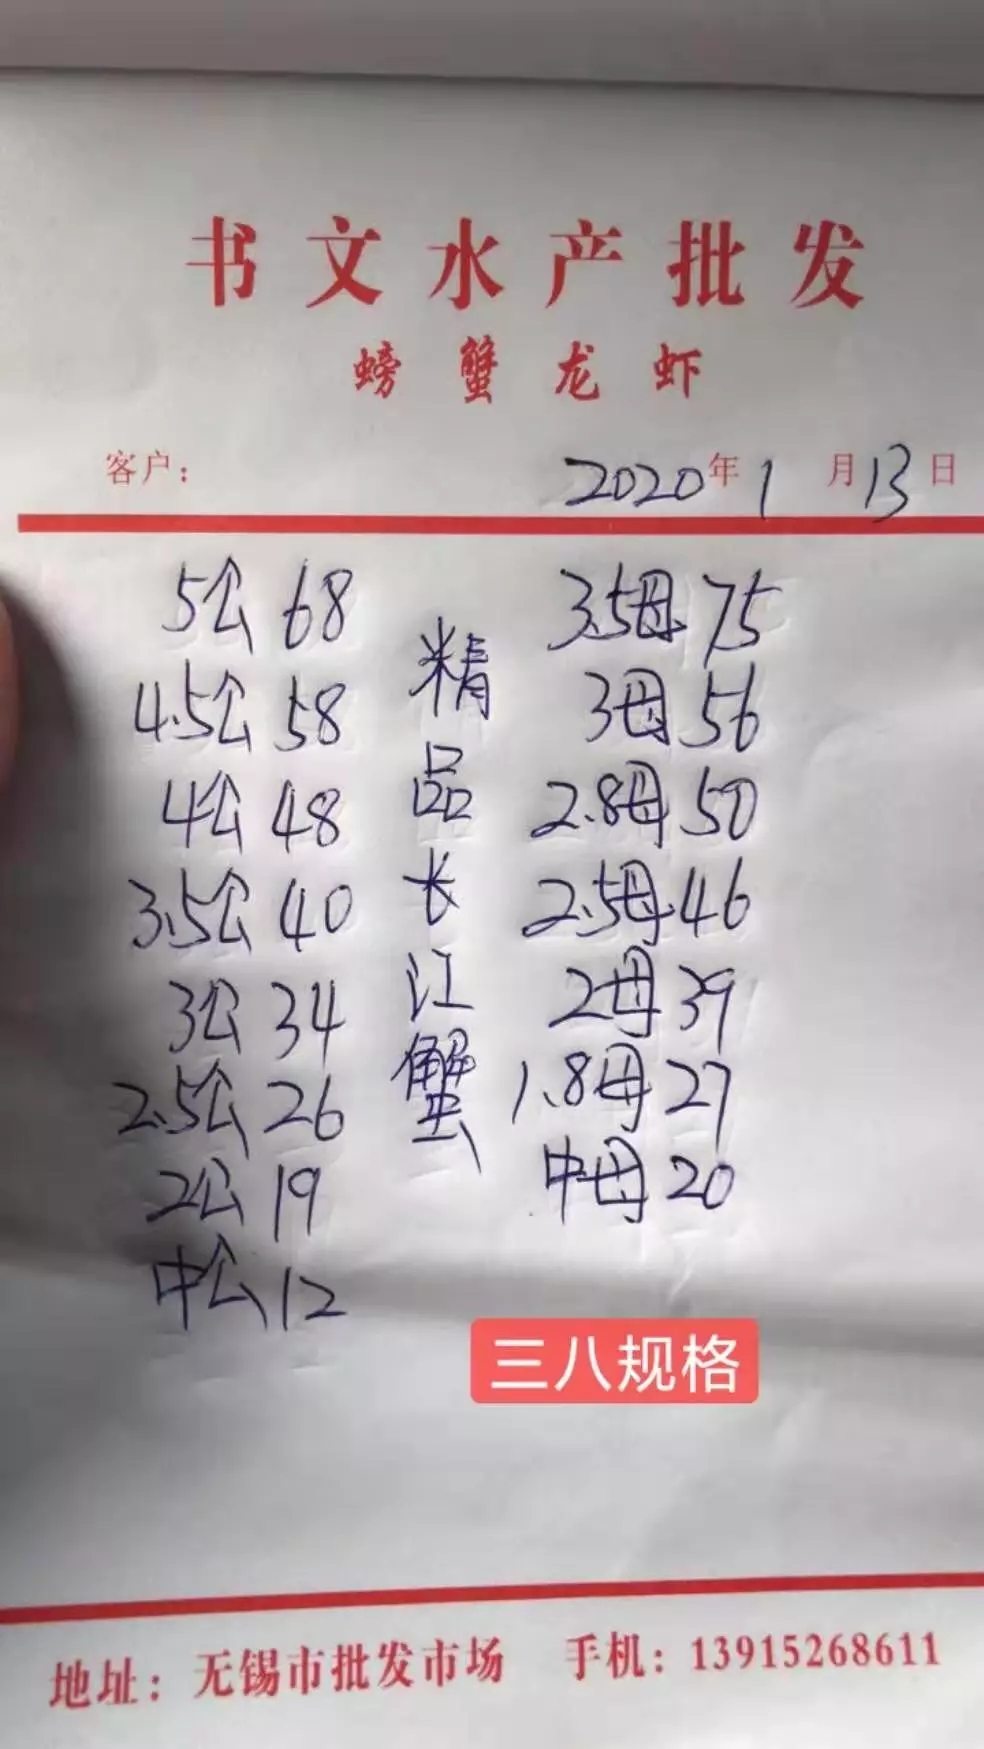 书文水产批发
螃蟹龙虾
客户：
2020年1月13日
5公 68
4.5公 58
4公 48
3.5公 40
3公 34
2.5公 26
2公 19
中公 12
精品长江蟹
3.5母 75
3母 56
2.8母 50
2.5母 46
2母 39
1.8母 27
中母 20
三八规格
地址：无锡市批发市场 手机：13915268611